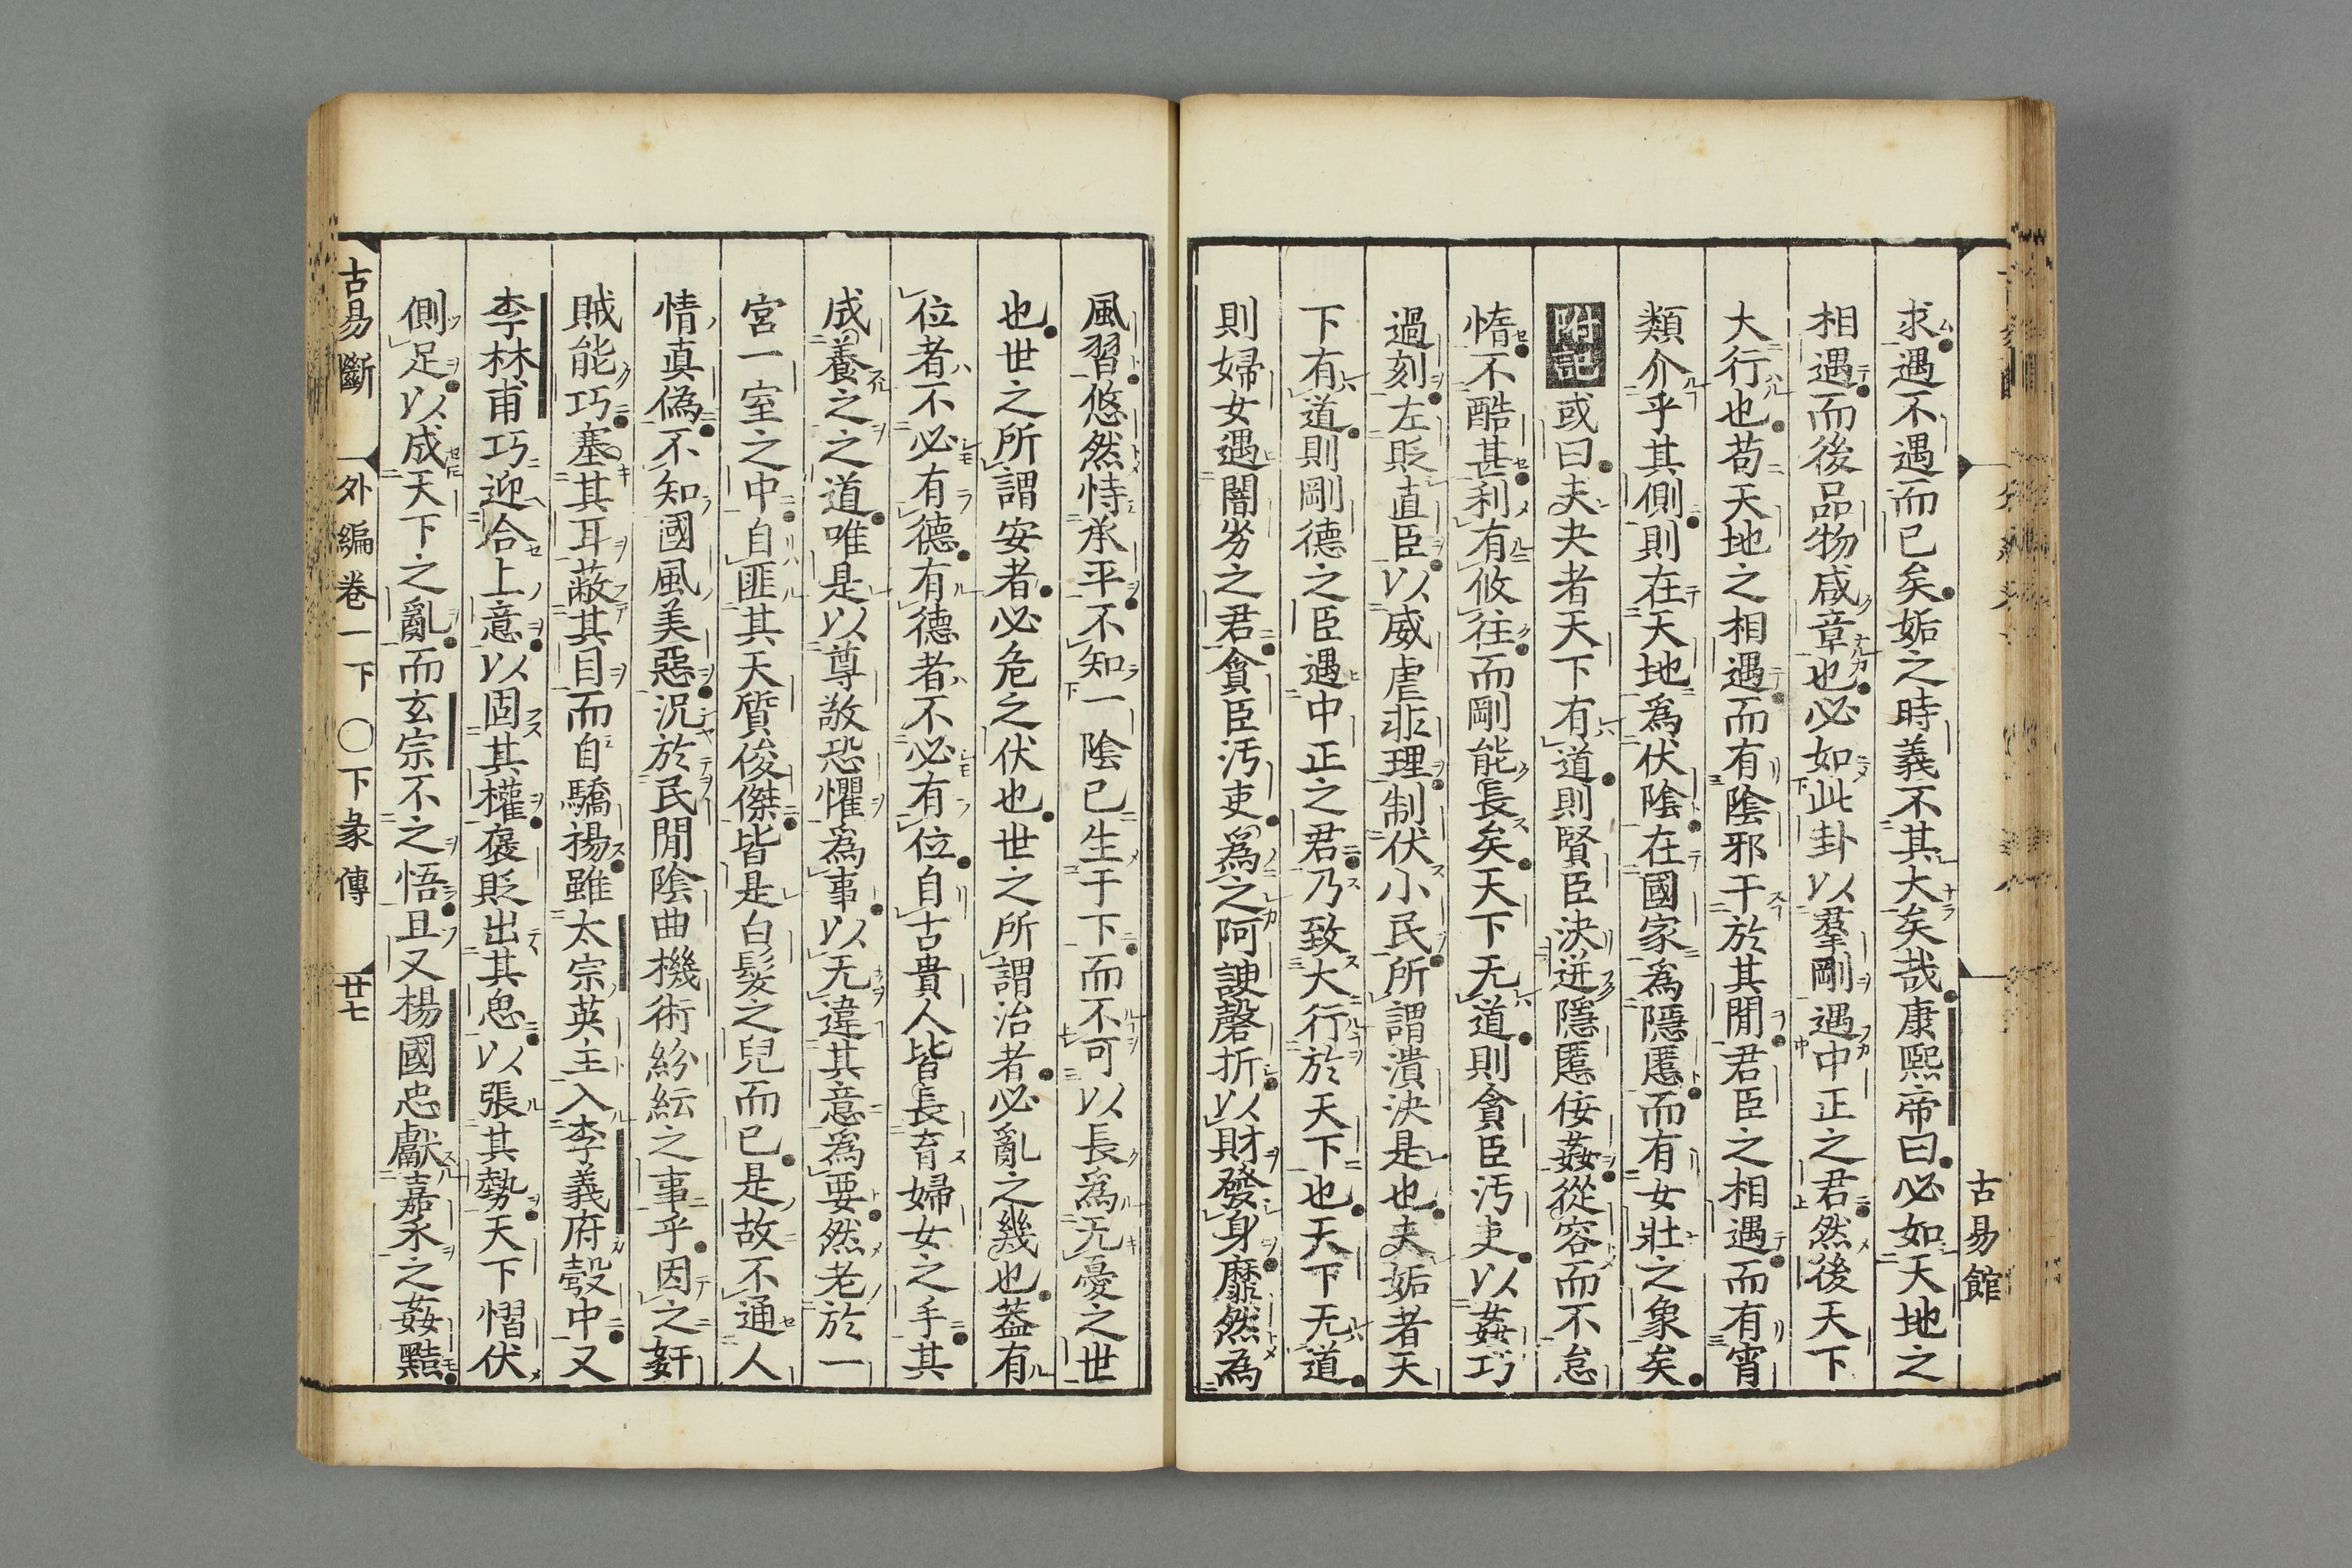 求遇不遇而已矣姤之時義不其大矣哉康熙帝曰必如天地之
相遇而後品物咸章也必如此卦以羣剛遇中正之君然後天下
大行也苟天地之相遇而有陰邪干於其閒君臣之相遇而有宵
類介乎其側則在天地爲伏陰在國家爲隱慝而有女壯之象矣
附記或曰夫夬者天下有道則賢臣決迸隱慝侫姦從容而不怠
惰不酷甚利有攸往而剛能長矣天下无道則貪臣汚吏以姦巧
過刻左貶直臣以威虐非理制伏小民所謂潰決是也夫姤者天
下有道則剛德之臣遇中正之君乃致大行於天下也天下无道
則婦女遇闇劣之君貪臣汚吏爲之阿諛磬折以財發身靡然為
古易館
風習悠然恃承平不知一陰已生于下而不可以長爲无憂之世
也世之所謂安者必危之伏也世之所謂治者必亂之幾也葢有
位者不必有德有德者不必有位自古貴人皆長育婦女之手其
成養之之道唯是以尊敬恐懼爲事以无違其意爲要然老於一
宮一室之中自匪其天質俊傑皆是白髮之兒而已是故不通人
情真僞不知國風美惡況於民閒陰曲機術紛紜之事乎因之奸
賊能巧塞其耳蔽其目而自驕揚雖太宗英主入李義府彀中又
李林甫巧迎合上意以固其權褒貶出其息以張其勢天下慴伏
側足以成天下之亂而玄宗不之悟且又楊國忠獻嘉禾之姦黠
古易斷 外編卷一下 ○下彖傳 廿七